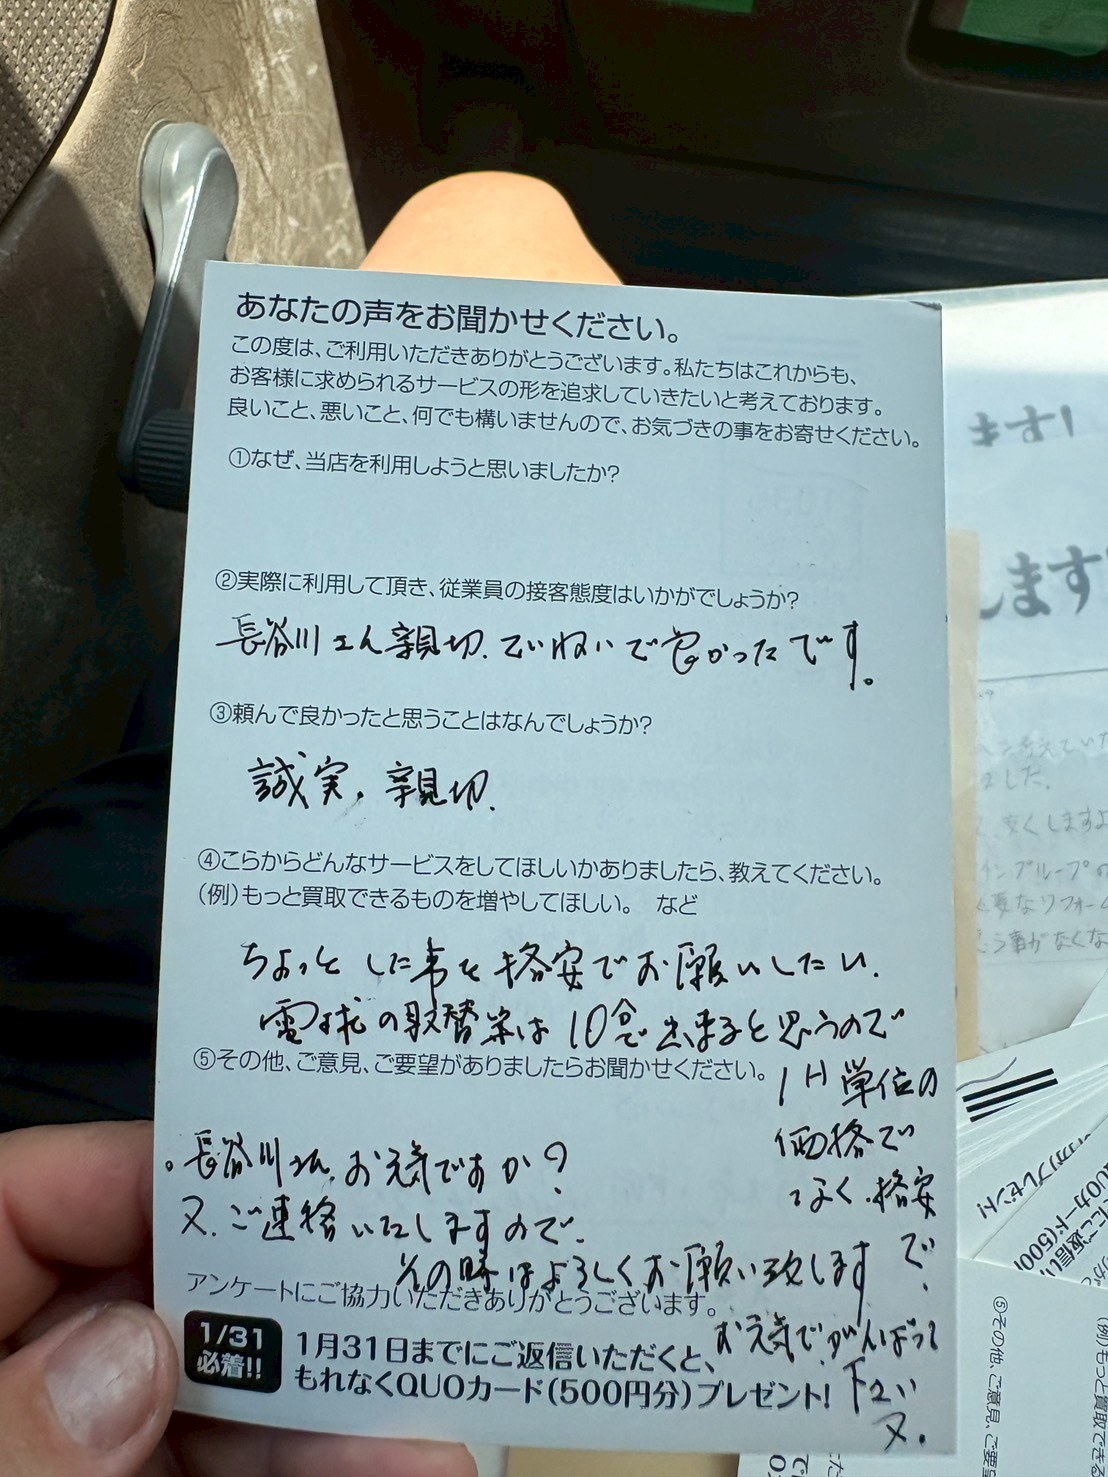 あなたの声をお聞かせください。
この度は、ご利用いただきありがとうございます。私たちはこれからも、
お客様に求められるサービスの形を追求していきたいと考えております。
良いこと、悪いこと、何でも構いませんので、お気づきの事をお寄せください。
①なぜ、当店を利用しようと思いましたか?
②実際に利用して頂き、従業員の接客態度はいかがでしょうか?
長谷川さん親切、ていねいで良かったです。
③頼んで良かったと思うことはなんでしょうか?
誠実、親切、
④こらからどんなサービスをしてほしいかありましたら、教えてください。
(例)もっと買取できるものを増やしてほしい。 など
ちょっとした事を格安でお願いしたい、
電球の取替等は10分で出来ると思うので
1H単位の
価格で
なく、格安
で、
⑤その他、ご意見、ご要望がありましたらお聞かせください。
。長谷川さん、お元気ですか?
又、ご連絡いたしますので、
その時はよろしくお願い致します
お元気で、がんばって
下さい
又、
アンケートにご協力いただきありがとうございます。
1/31
必着!!
1月31日までにご返信いただくと、
もれなくQUOカード(500円分)プレゼント!
ます!
します
ました。
⑤その他、ご意見、ご要